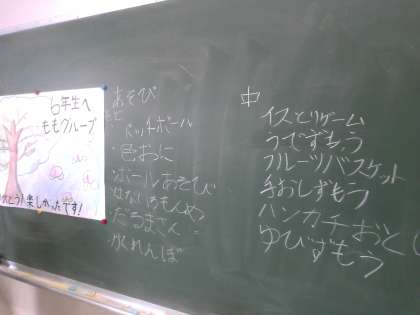 6年生へ
ももグループ
とう!楽しかったです!
あそび
ドッチボール
色おに
ボールあそび
はないちもんめ
だるまさん
かくれんぼ
中
イスとりゲーム
うでずもう
フルーツバスケット
手おしずもう
ハンカチおとし
ゆびずもう